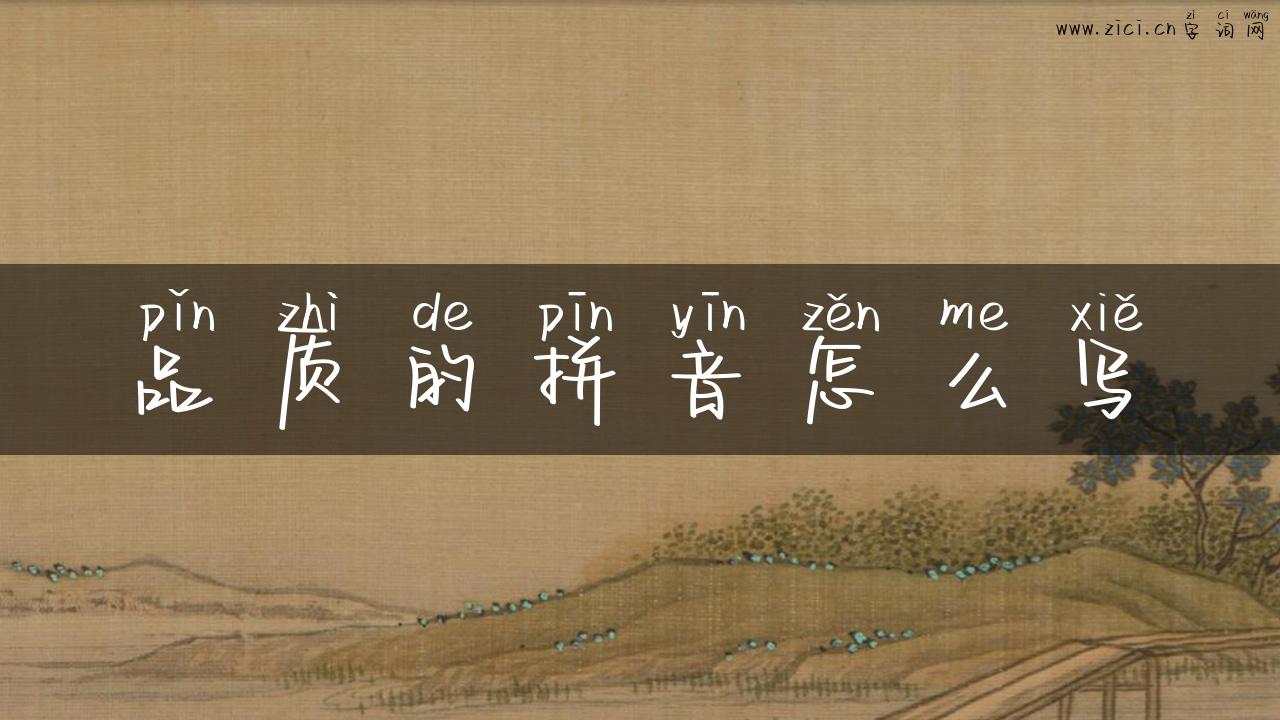 zì cí wǎng
www.zici.cn字词网
pǐn zhì de pīn yīn zěn me xiě
品质的拼音怎么写